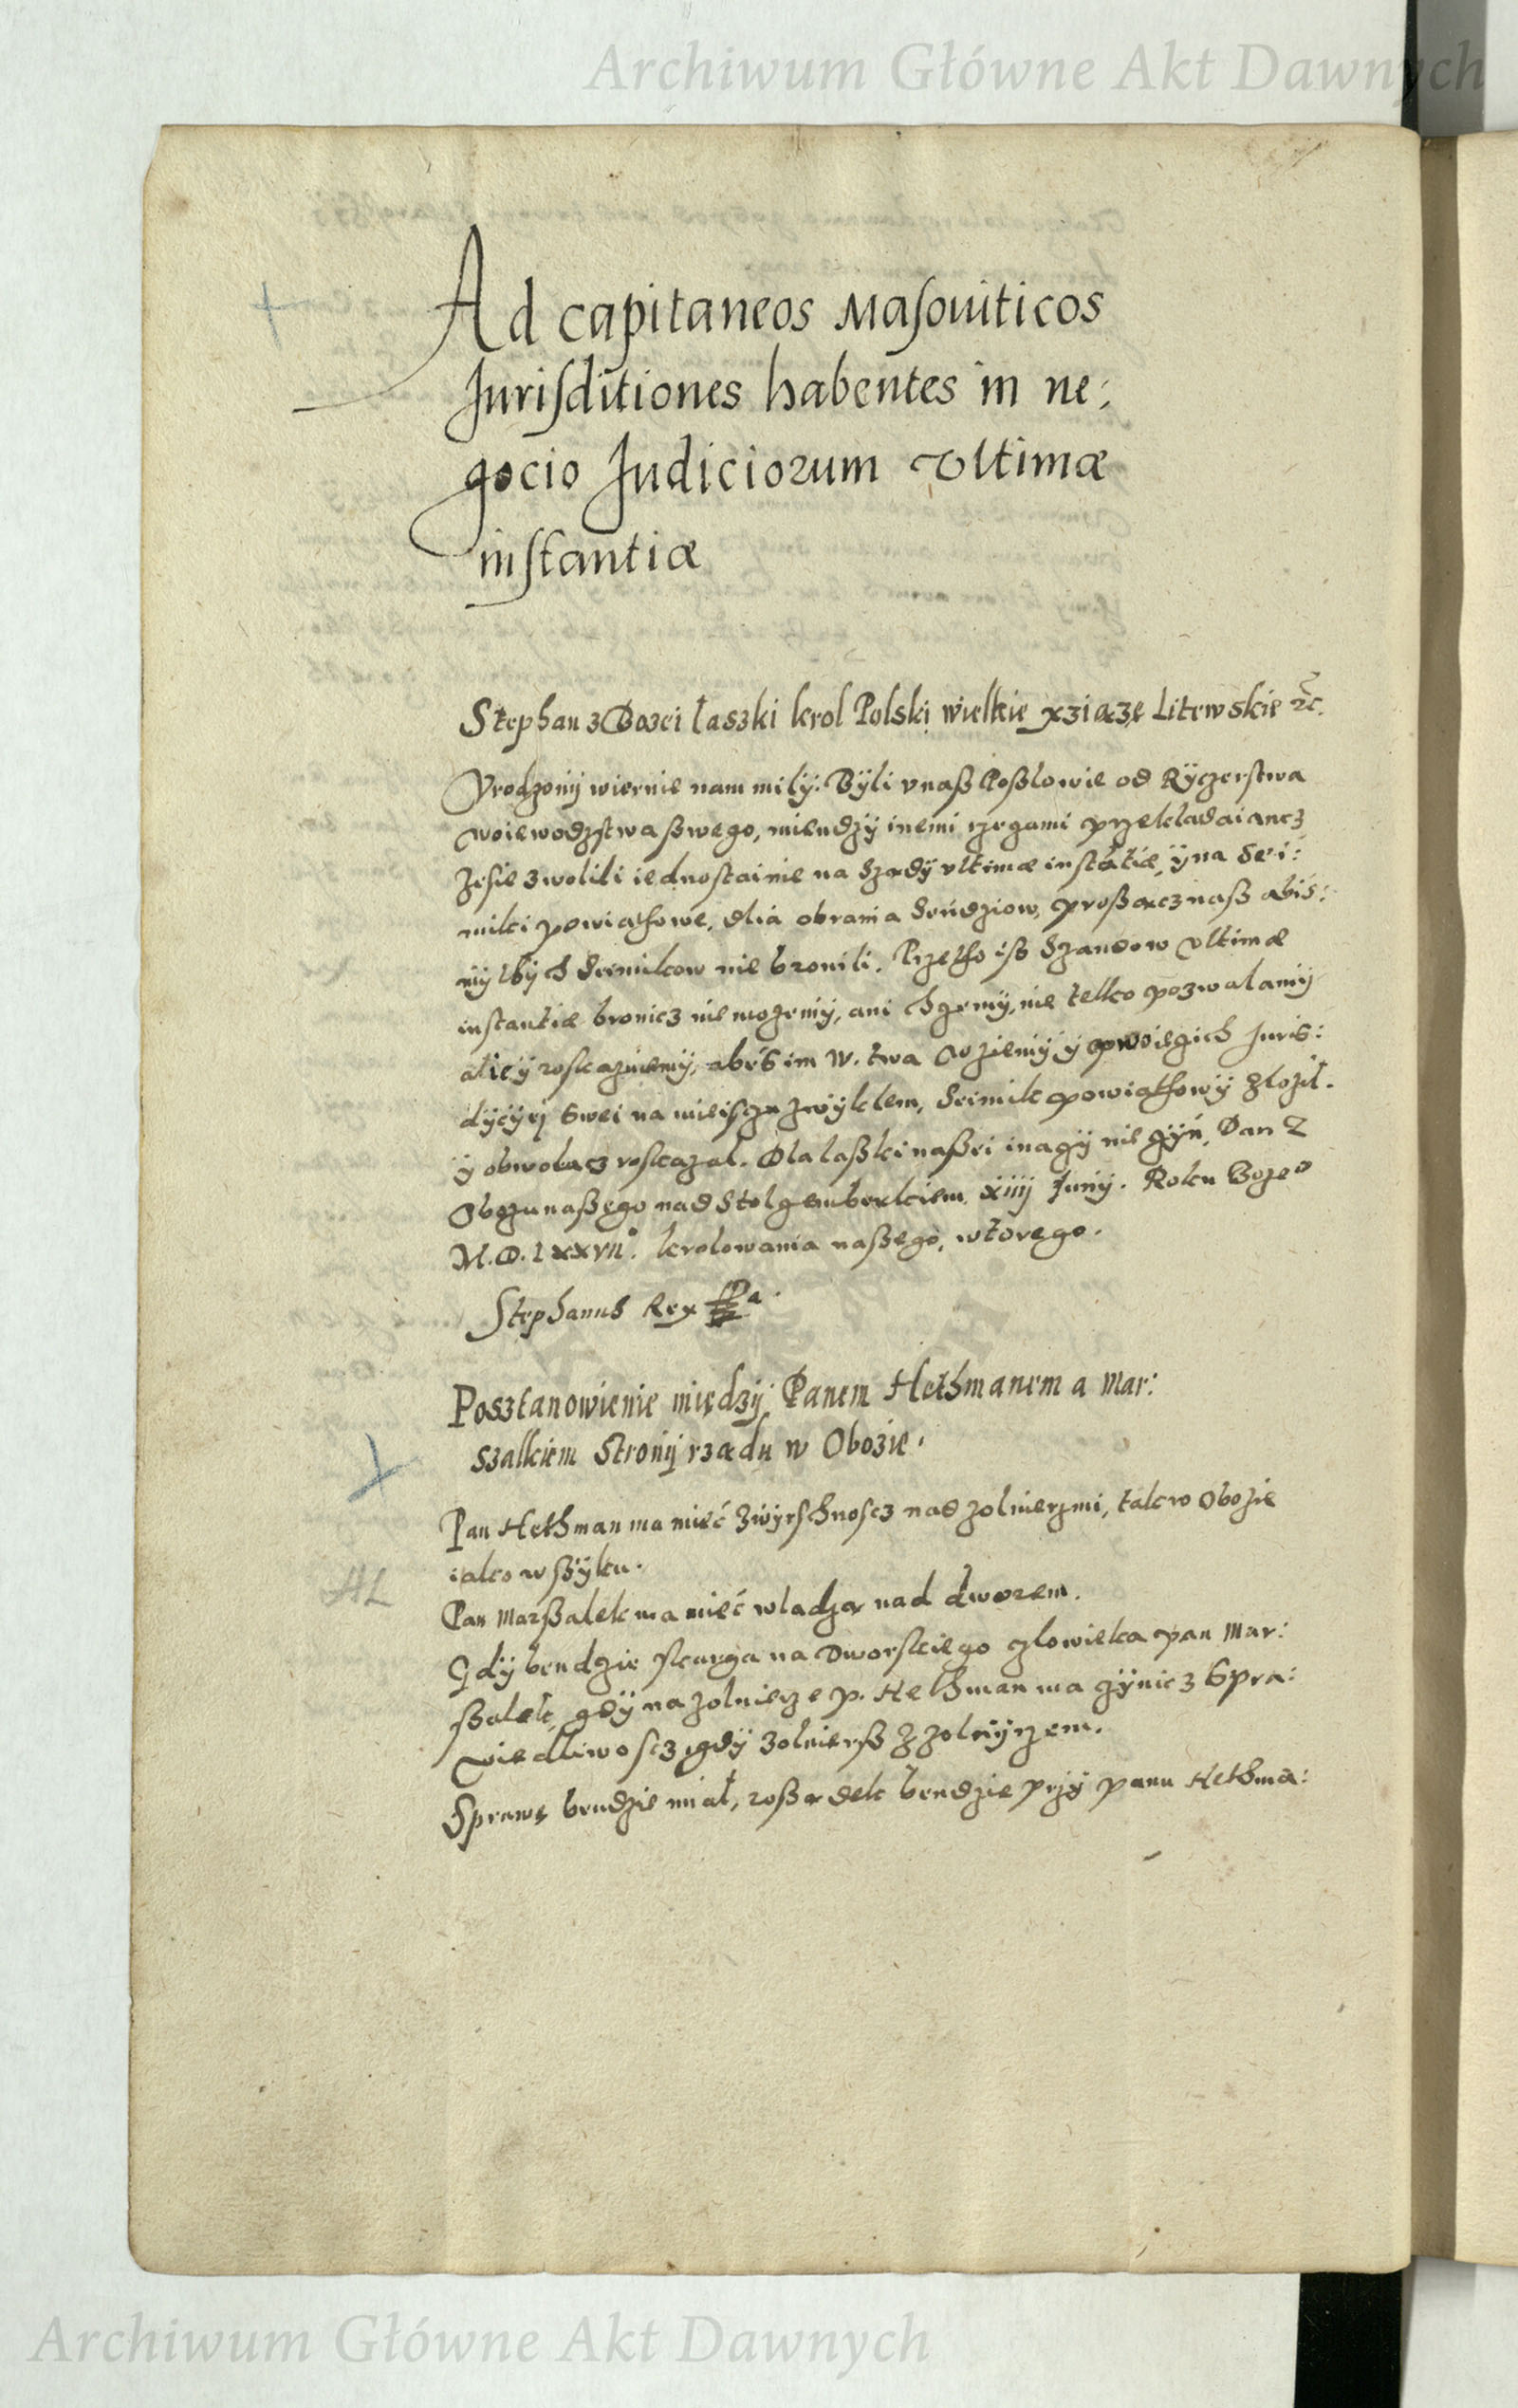 Archiwum Główne Akt Dawnych
Ad capitaneos Masouiticos
Jurisditiones habentes in ne:
gocio Judiciorum Vltimæ
instantiæ
Stephan z Bozei laszki krol Polski wielkie xziąze Litewskie etc.
Vrodzony wiernie nam mily. Byli v naß Poßlowie od Ryczerstwa
woiewodzstwa ßwego, miendzy inemi rzeczami przekladaiancz
ze sie zwolili iednostainie na Sządy vltimæ instātiæ, y na Sei:
miki powiathowe, dlia obrania Sendziow, proßącz naß abis:
my tych Seimikow nie bronili. Przetho iß Szandow vltimæ
instantiæ bronicz nie mozemy, ani chczemy, nie telko pozwalamy
alie y roskazuiemy, abys im W. twa w ziemi y powieczich Juris:
dycyey swei na mieisczu zwyklem, Seimik powiathowy zlozil.
y obwolacz roskazal. Dla laßki naßei inaczy nie czyn, Dan z
Obozu naßego nad Stolczemberkiem, xiiij Juny. Roku Bozeo
M.D.LXXVII. krolowania naßego, wtorego.
Stephanus Rex
Posztanowienie między Panem Hethmanem a Mar:
szalkiem Strony rządu w Obozie.
Pan Hethman ma mieć zwyrschnoscz nad zolnierzmi, tak w Obozie
iako w ßyku.
Pan Marßalek ma mieć wladzą nad dworem.
Gdy bendzie skarga na Dworskiego czlowieka pan Mar:
ßalek, gdy na zolnierze p. Hethman ma czynicz Spra:
wiedliwoscz, gdy zolnierß z zolnyrzem.
Sprawę bendzie mial, roßądek bendzie przy panu Hethmā:
HL
Archiwum Główne Akt Dawnych